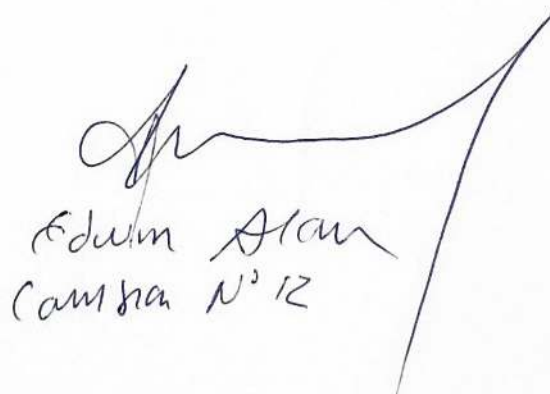 Edwin Alan
Comisión N° 12